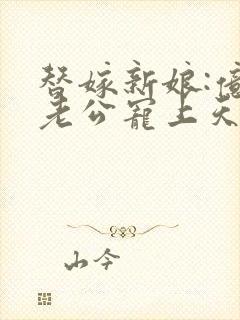 替嫁新娘:億
老公寵上天
山今